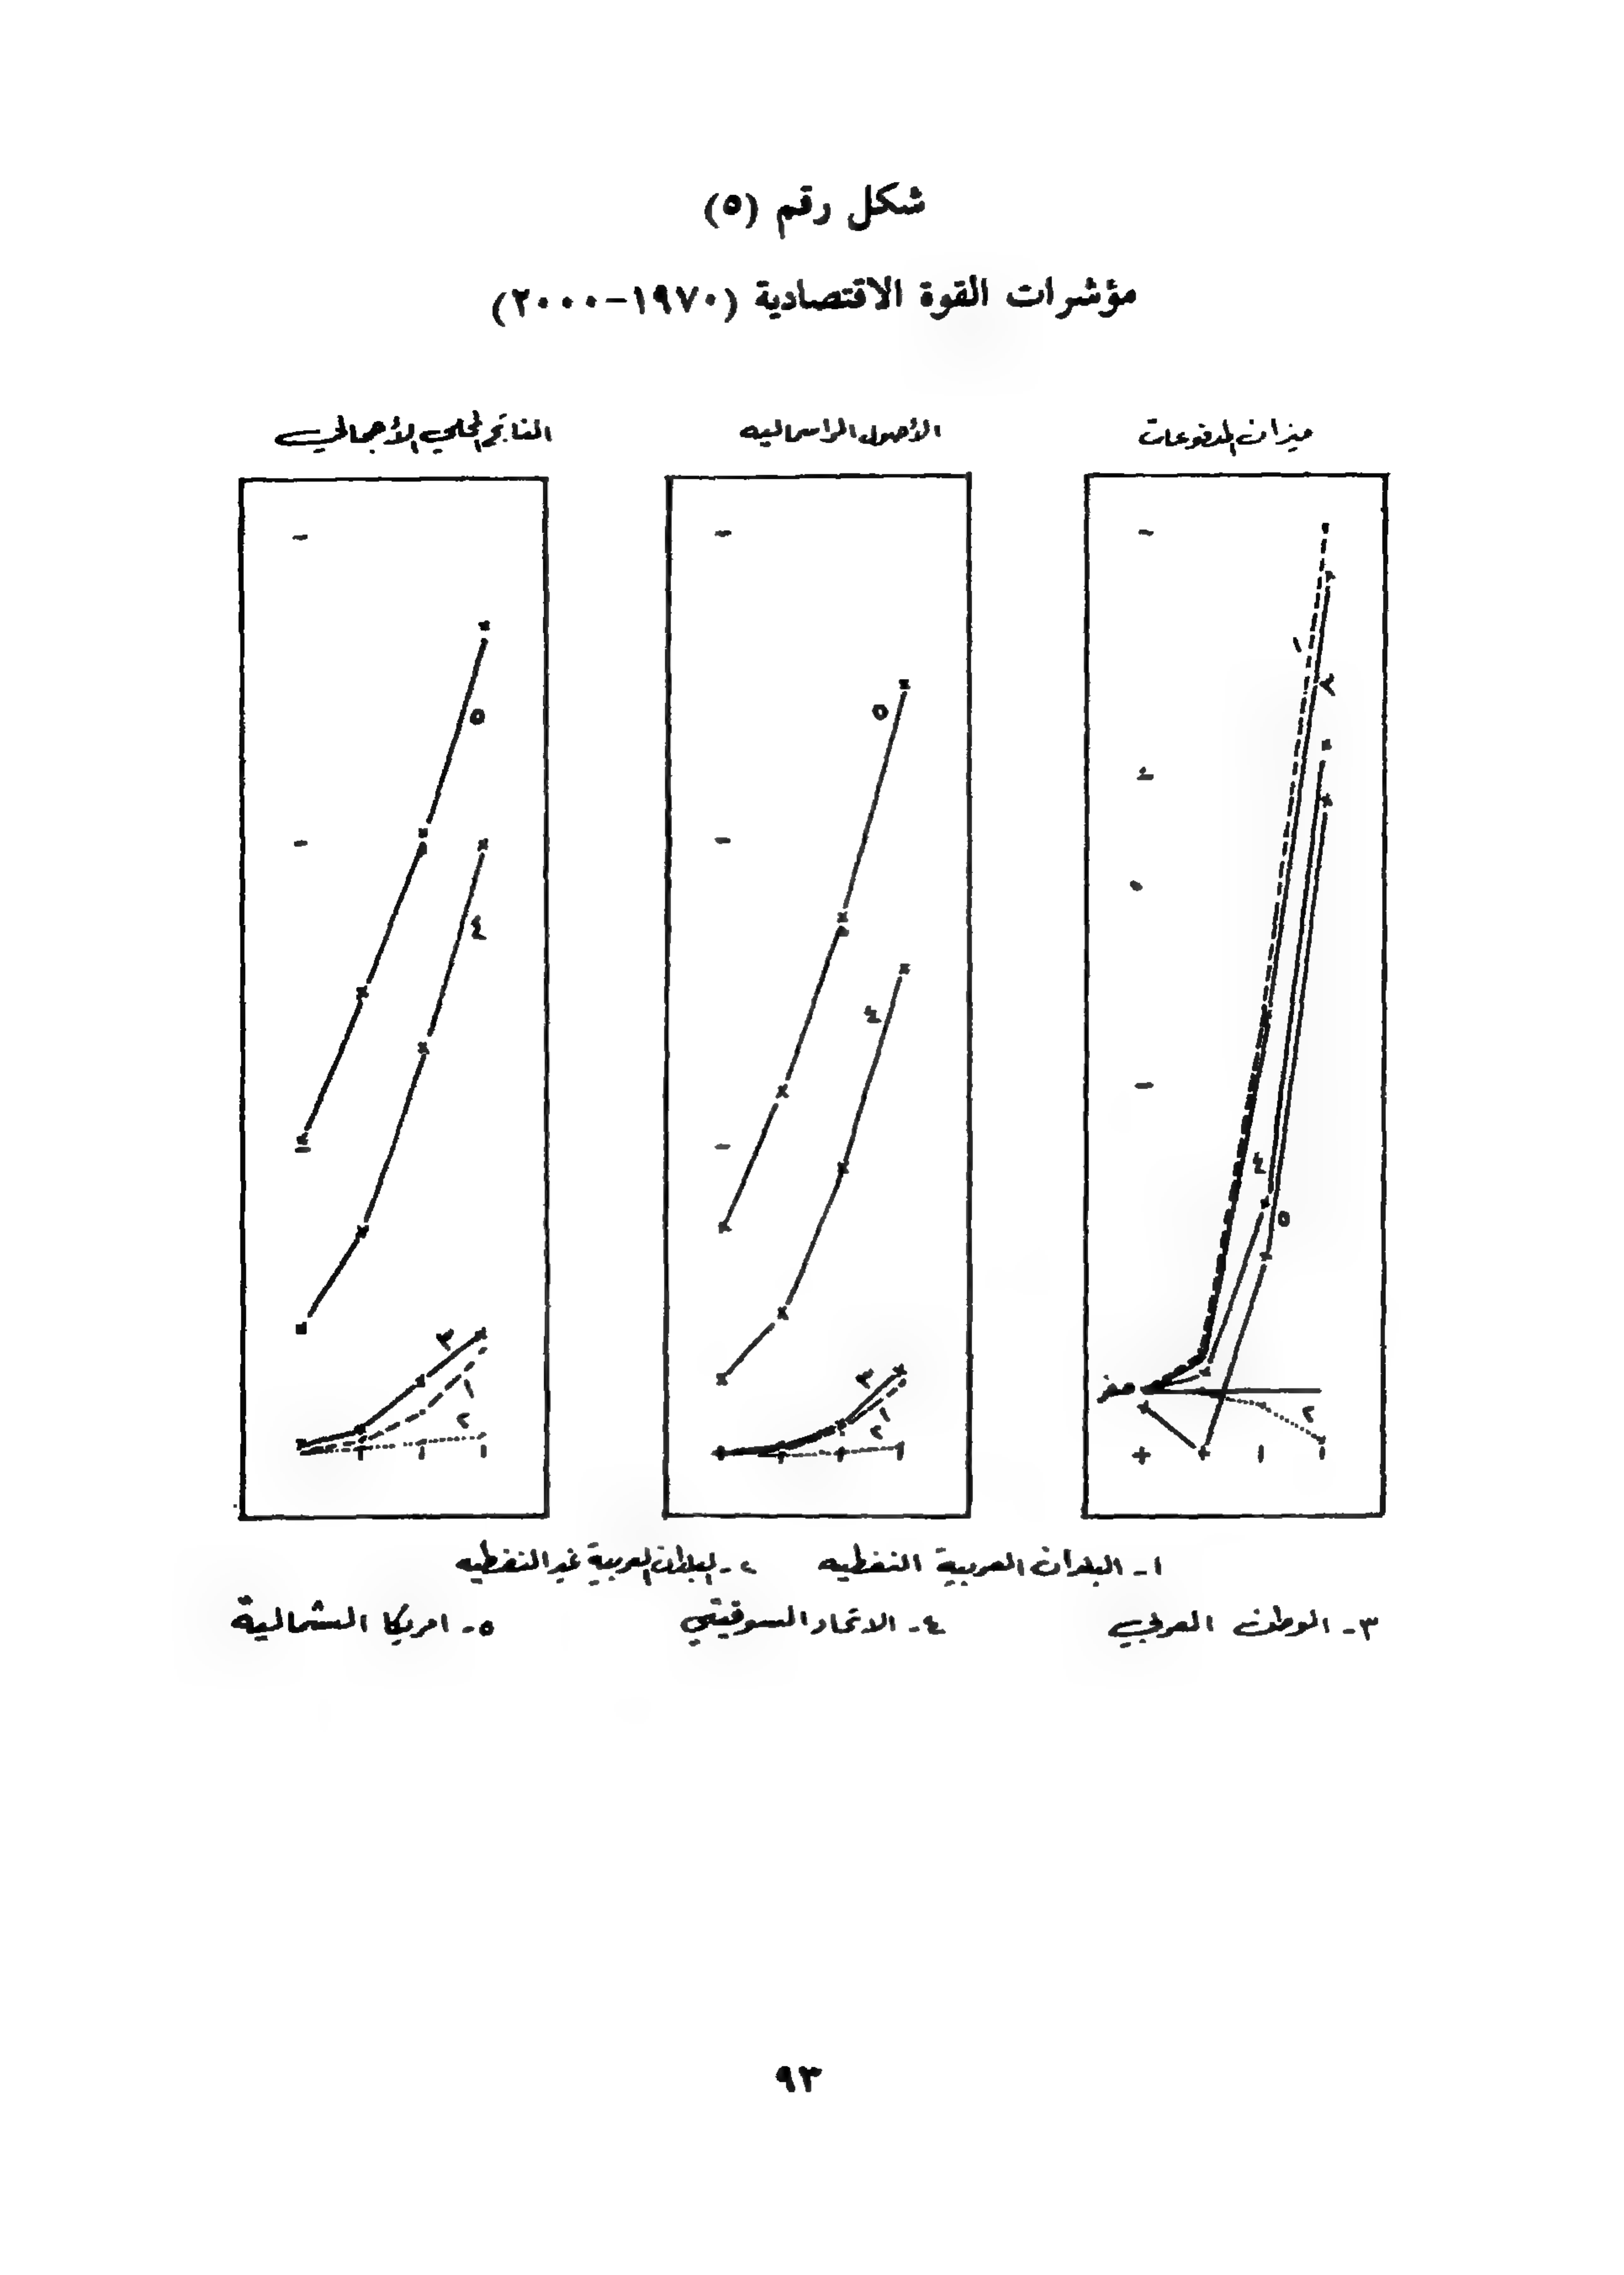 شكل رقم (٥)
مؤشرات القوة الاقتصادية (١٩٧٠-٢٠٠٠)
ميزان المدفوعات
الأصول الراسماليه
الناتج المحلي الأجمالي
١
٣
٤
٥
صفر
٢
٥
٤
٣
١
٢
٥
٤
٣
١
٢
١- البلدان العربية النفطيه ٢- البلدان العربية غير النفطيه
٣- الوطن العربي ٤- الاتحاد السوفيتي ٥- امريكا الشمالية
٩٣